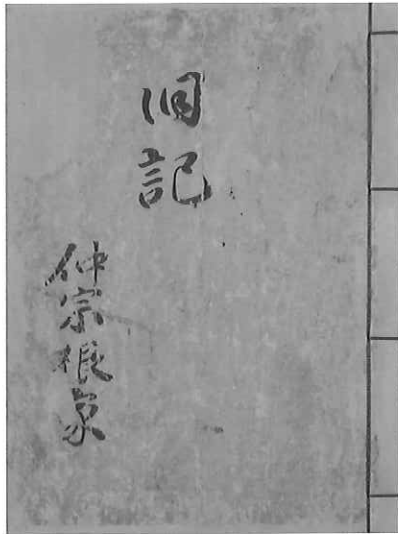 旧記
仲宗根家